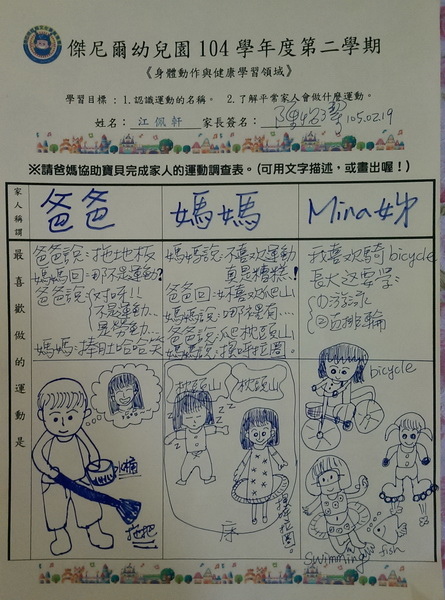 傑尼爾幼兒園104學年度第二學期
《身體動作與健康學習領域》
學習目標:1.認識運動的名稱。 2.了解平常家人會做什麼運動。
姓名: 江佩軒 家長簽名: 105.02.19
※請爸媽協助寶貝完成家人的運動調查表。(可用文字描述,或畫出喔!)
家人稱謂
爸爸
媽媽
Mina姊
最喜歡做的運動是
爸爸說:拖地板
媽媽回:哪不是運動?
爸爸說:(對呀!!
不是運動、
是勞動…
媽媽:捧肚哈哈笑
媽媽說:不喜欢運動
真是糟糕!
爸爸回:妳喜欢爬山
媽媽說:哪裡有…
爸爸說:爬枕頭山
媽媽說:摸呼拉圈。
我喜欢騎bicycle
長大还要學:
(1)游泳
(2)直排輪
水桶
拖把
枕頭山
枕頭山
zzz
床
呼拉圈。
bicycle
swimming
fish